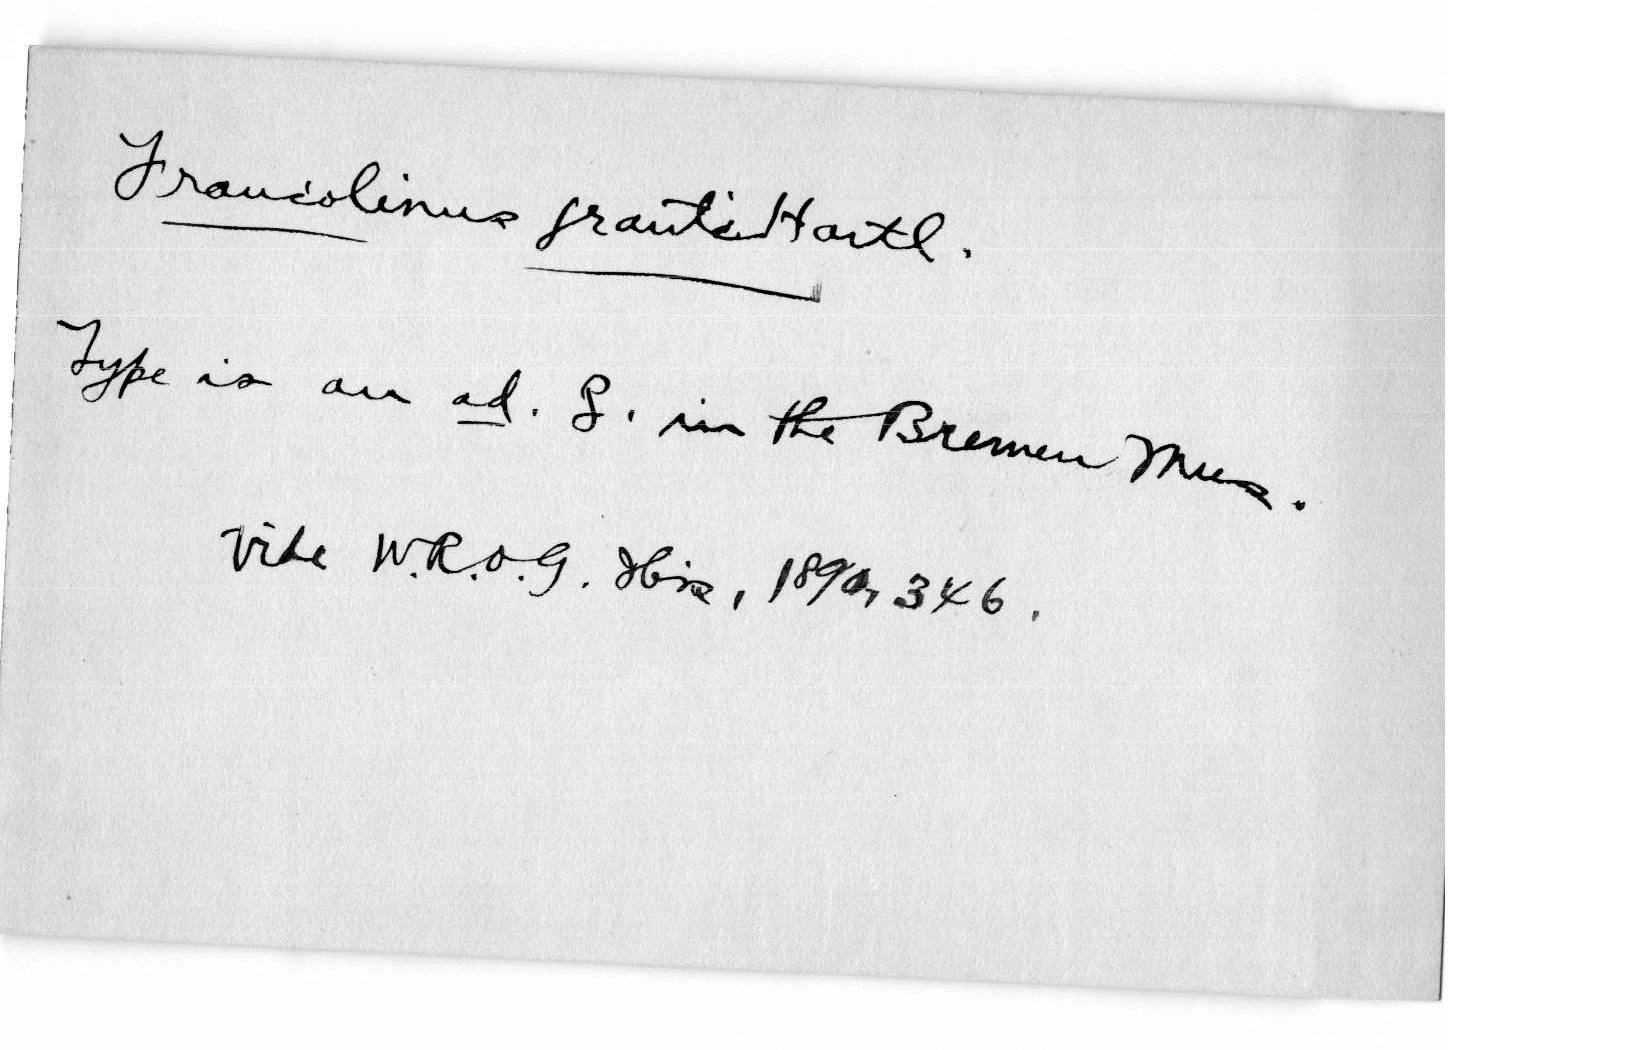 Francolinus granti Hartl.
Type is an ad. ♀. in the Bremen Mus.
Vide W.R.O.G. Ibis, 1890, 346.